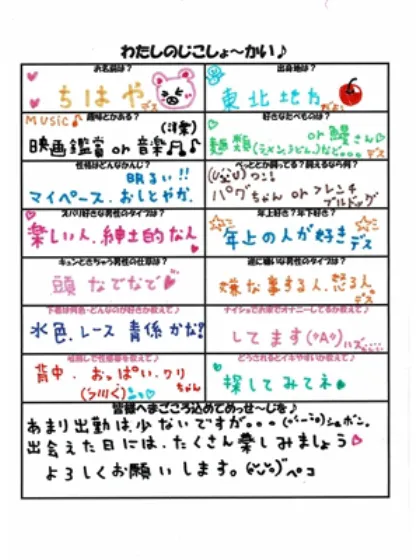 わたしのじこしょ〜かい♪
お名前は?
ちはや デス
出身地は?
東北地方 デス
趣味とかある?
MUSIC♪
(洋楽)
映画鑑賞 or 音楽♬♪
好きなたべものは?
or 鰻さん
麺類(ラーメン、うどん、)など。。。デス
性格はどんなかんじ?
明るい!!
マイペース、おしとやか、
ぺっととか飼ってる?飼えるなら何?
ワン!
パグちゃん or フレンチ
ブルドッグ
ズバリ好きな男性のタイプは?
楽しい人、紳士的な人
年上好き?年下好き?
年上の人が好き デス
キュンときちゃう男性の仕草は?
頭 なでなで
逆に嫌いな男性のタイプは?
嫌な事する人、怒る人、デス
下着は何色・どんなのが好きか教えて♪
水色、レース 青係かな?
ナイショでお家でオナニーしてるか教えて♪
してます(°A°)
どうされるとイキやすいか教えて♪
背中、おっぱい、クリ
ちゃん
探してみてネ
皆様へまごころ込めてめっせ〜じを♪
あまり出勤は少ないですが。。。ショボン。
出会えた日には、たくさん楽しみましょう
よろしくお願いします。ペコ